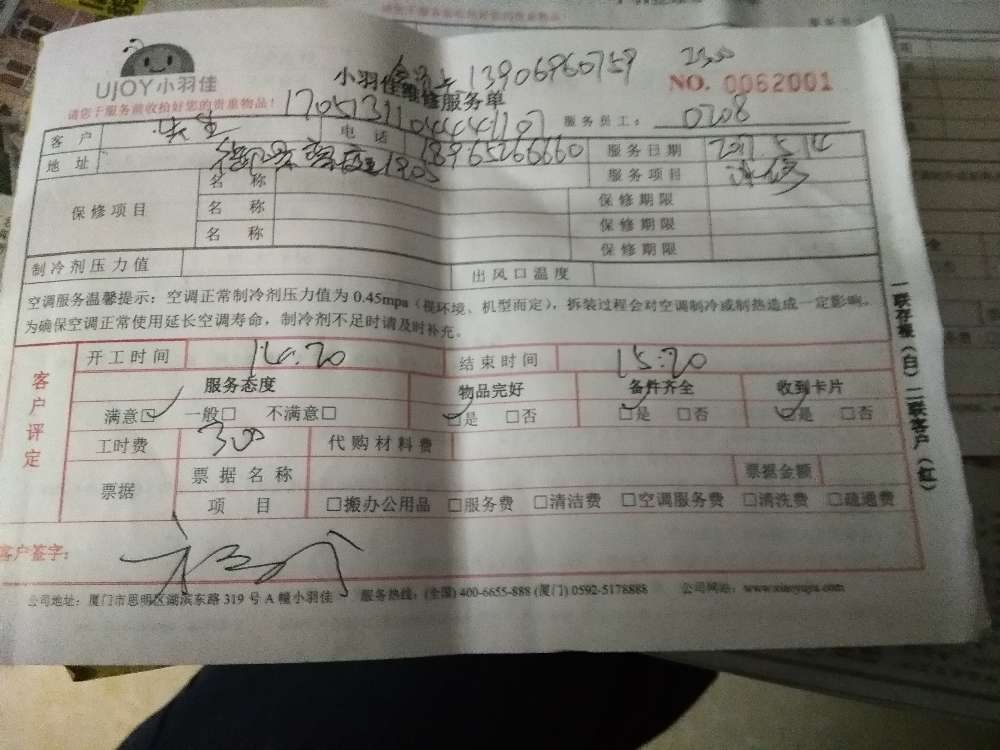 UJOY小羽佳
13906960759
2300
小羽佳维修服务单
NO. 0062001
请您于服务前收拾好您的贵重物品！
服务员工： 0208
客户 先生 电话
地址 1903 18965266660 服务日期 2017.5.14
服务项目 维修
保修项目 名称 保修期限
名称 保修期限
名称 保修期限
制冷剂压力值 出风口温度
空调服务温馨提示：空调正常制冷剂压力值为 0.45mpa（视环境、机型而定），拆装过程会对空调制冷或制热造成一定影响。
为确保空调正常使用延长空调寿命，制冷剂不足时请及时补充。
客户评定
开工时间 14:20 结束时间 15:20
服务态度 物品完好 备件齐全 收到卡片
满意☑ 一般□ 不满意□ ☑是 □否 ☑是 □否 ☑是 □否
工时费 300 代购材料费
票据 票据名称 票据金额
项目 □搬办公用品 □服务费 □清洁费 □空调服务费 □清洗费 □疏通费
客户签字：
公司地址：厦门市思明区湖滨东路 319 号 A 幢小羽佳 服务热线：(全国) 400-6655-888 (厦门) 0592-5178888 公司网站：www.xiaoyujia.com
一联存根（白）二联客户（红）